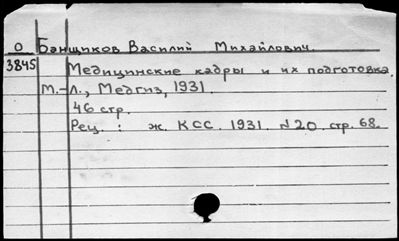 О Банщиков Василий Михайлович.
3845 Медицинские кадры и их подготовка.
М.-Л., Медгиз, 1931.
46 стр.
Рец.: ж. КСС. 1931. №20. стр. 68.